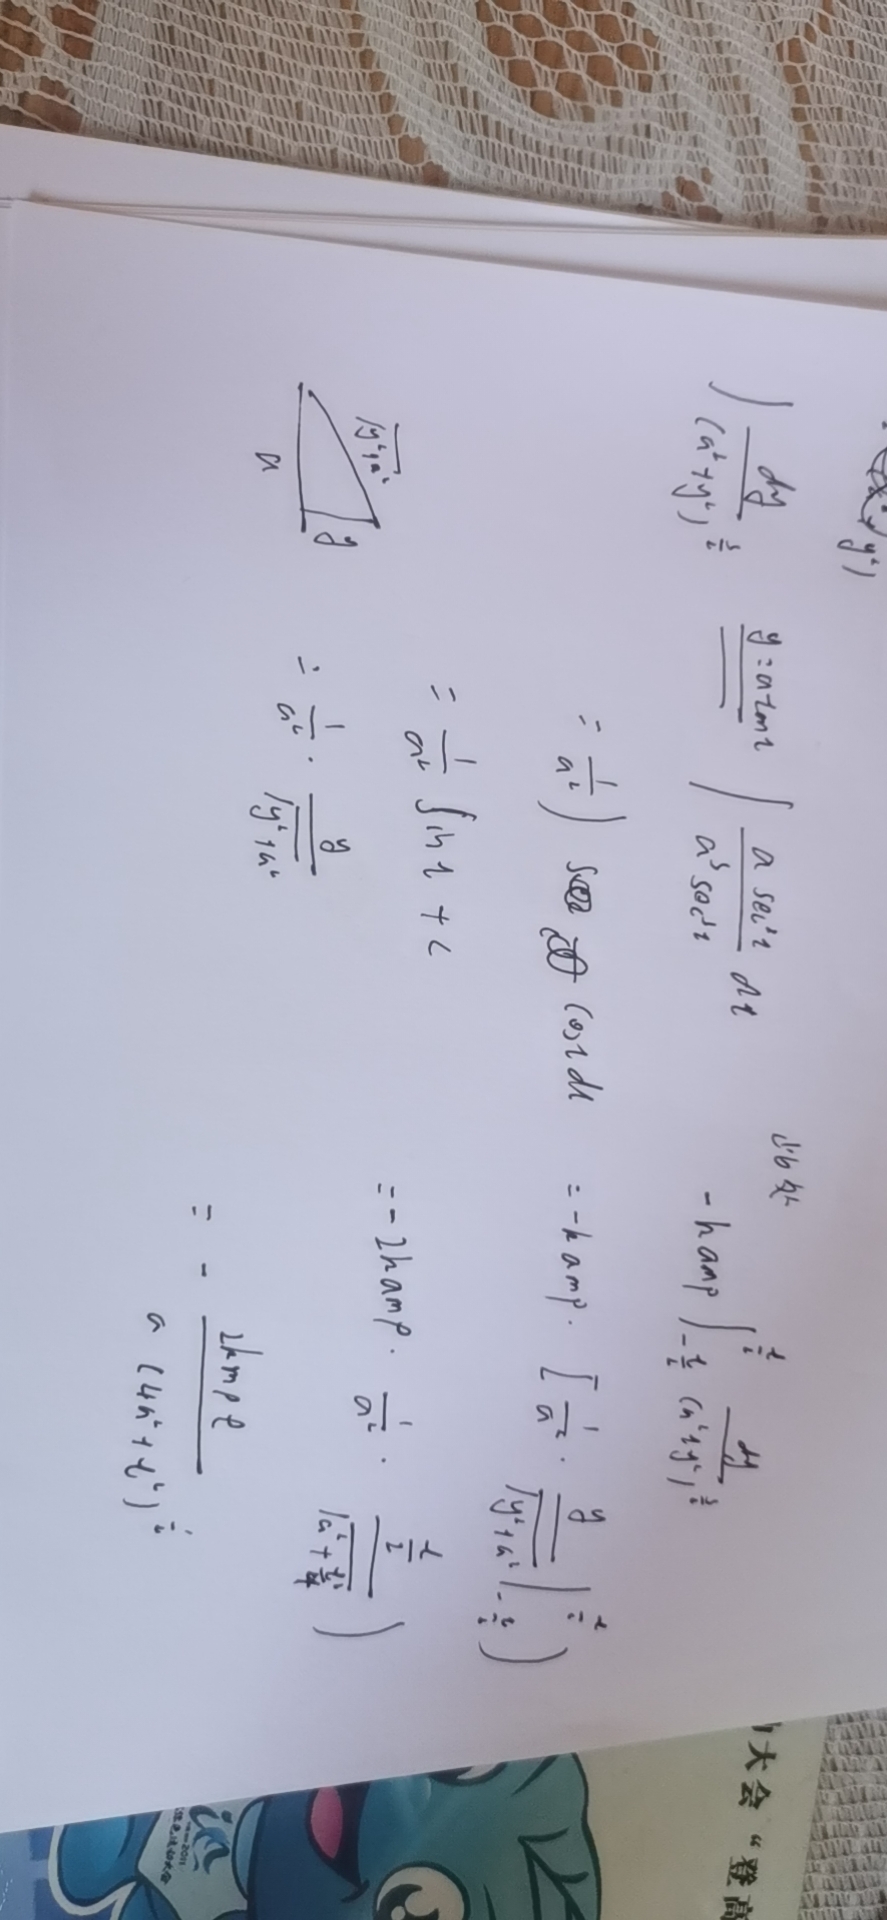 y²)
∫ dy/(a²+y²)^(3/2) y=atant ∫ a sec²t/a³sec³t dt
= 1/a² ∫ cost dt
= 1/a² sin t + C
= 1/a² · y/√(y²+a²)
√(y²+a²)
y
a
-kamρ ∫_(-l/2)^(l/2) dy/(a²+y²)^(3/2)
= -kamρ · [1/a² · y/√(y²+a²) |_(-l/2)^(l/2)]
= -2kamρ · 1/a² · (l/2)/√(a²+l²/4) )
= - 2kmρl/a(4a²+l²)^(1/2)
大会“登高